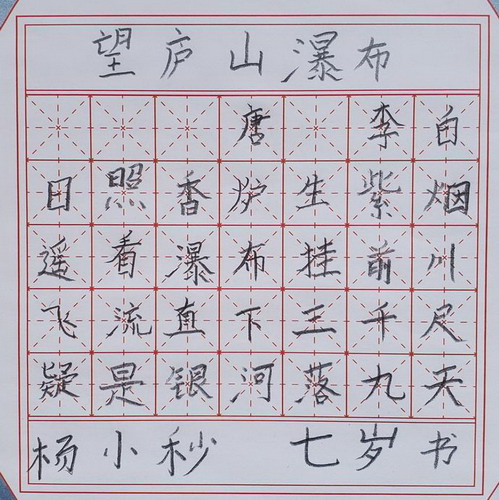 望庐山瀑布
唐 李白
日照香炉生紫烟
遥看瀑布挂前川
飞流直下三千尺
疑是银河落九天
杨小秒 七岁书